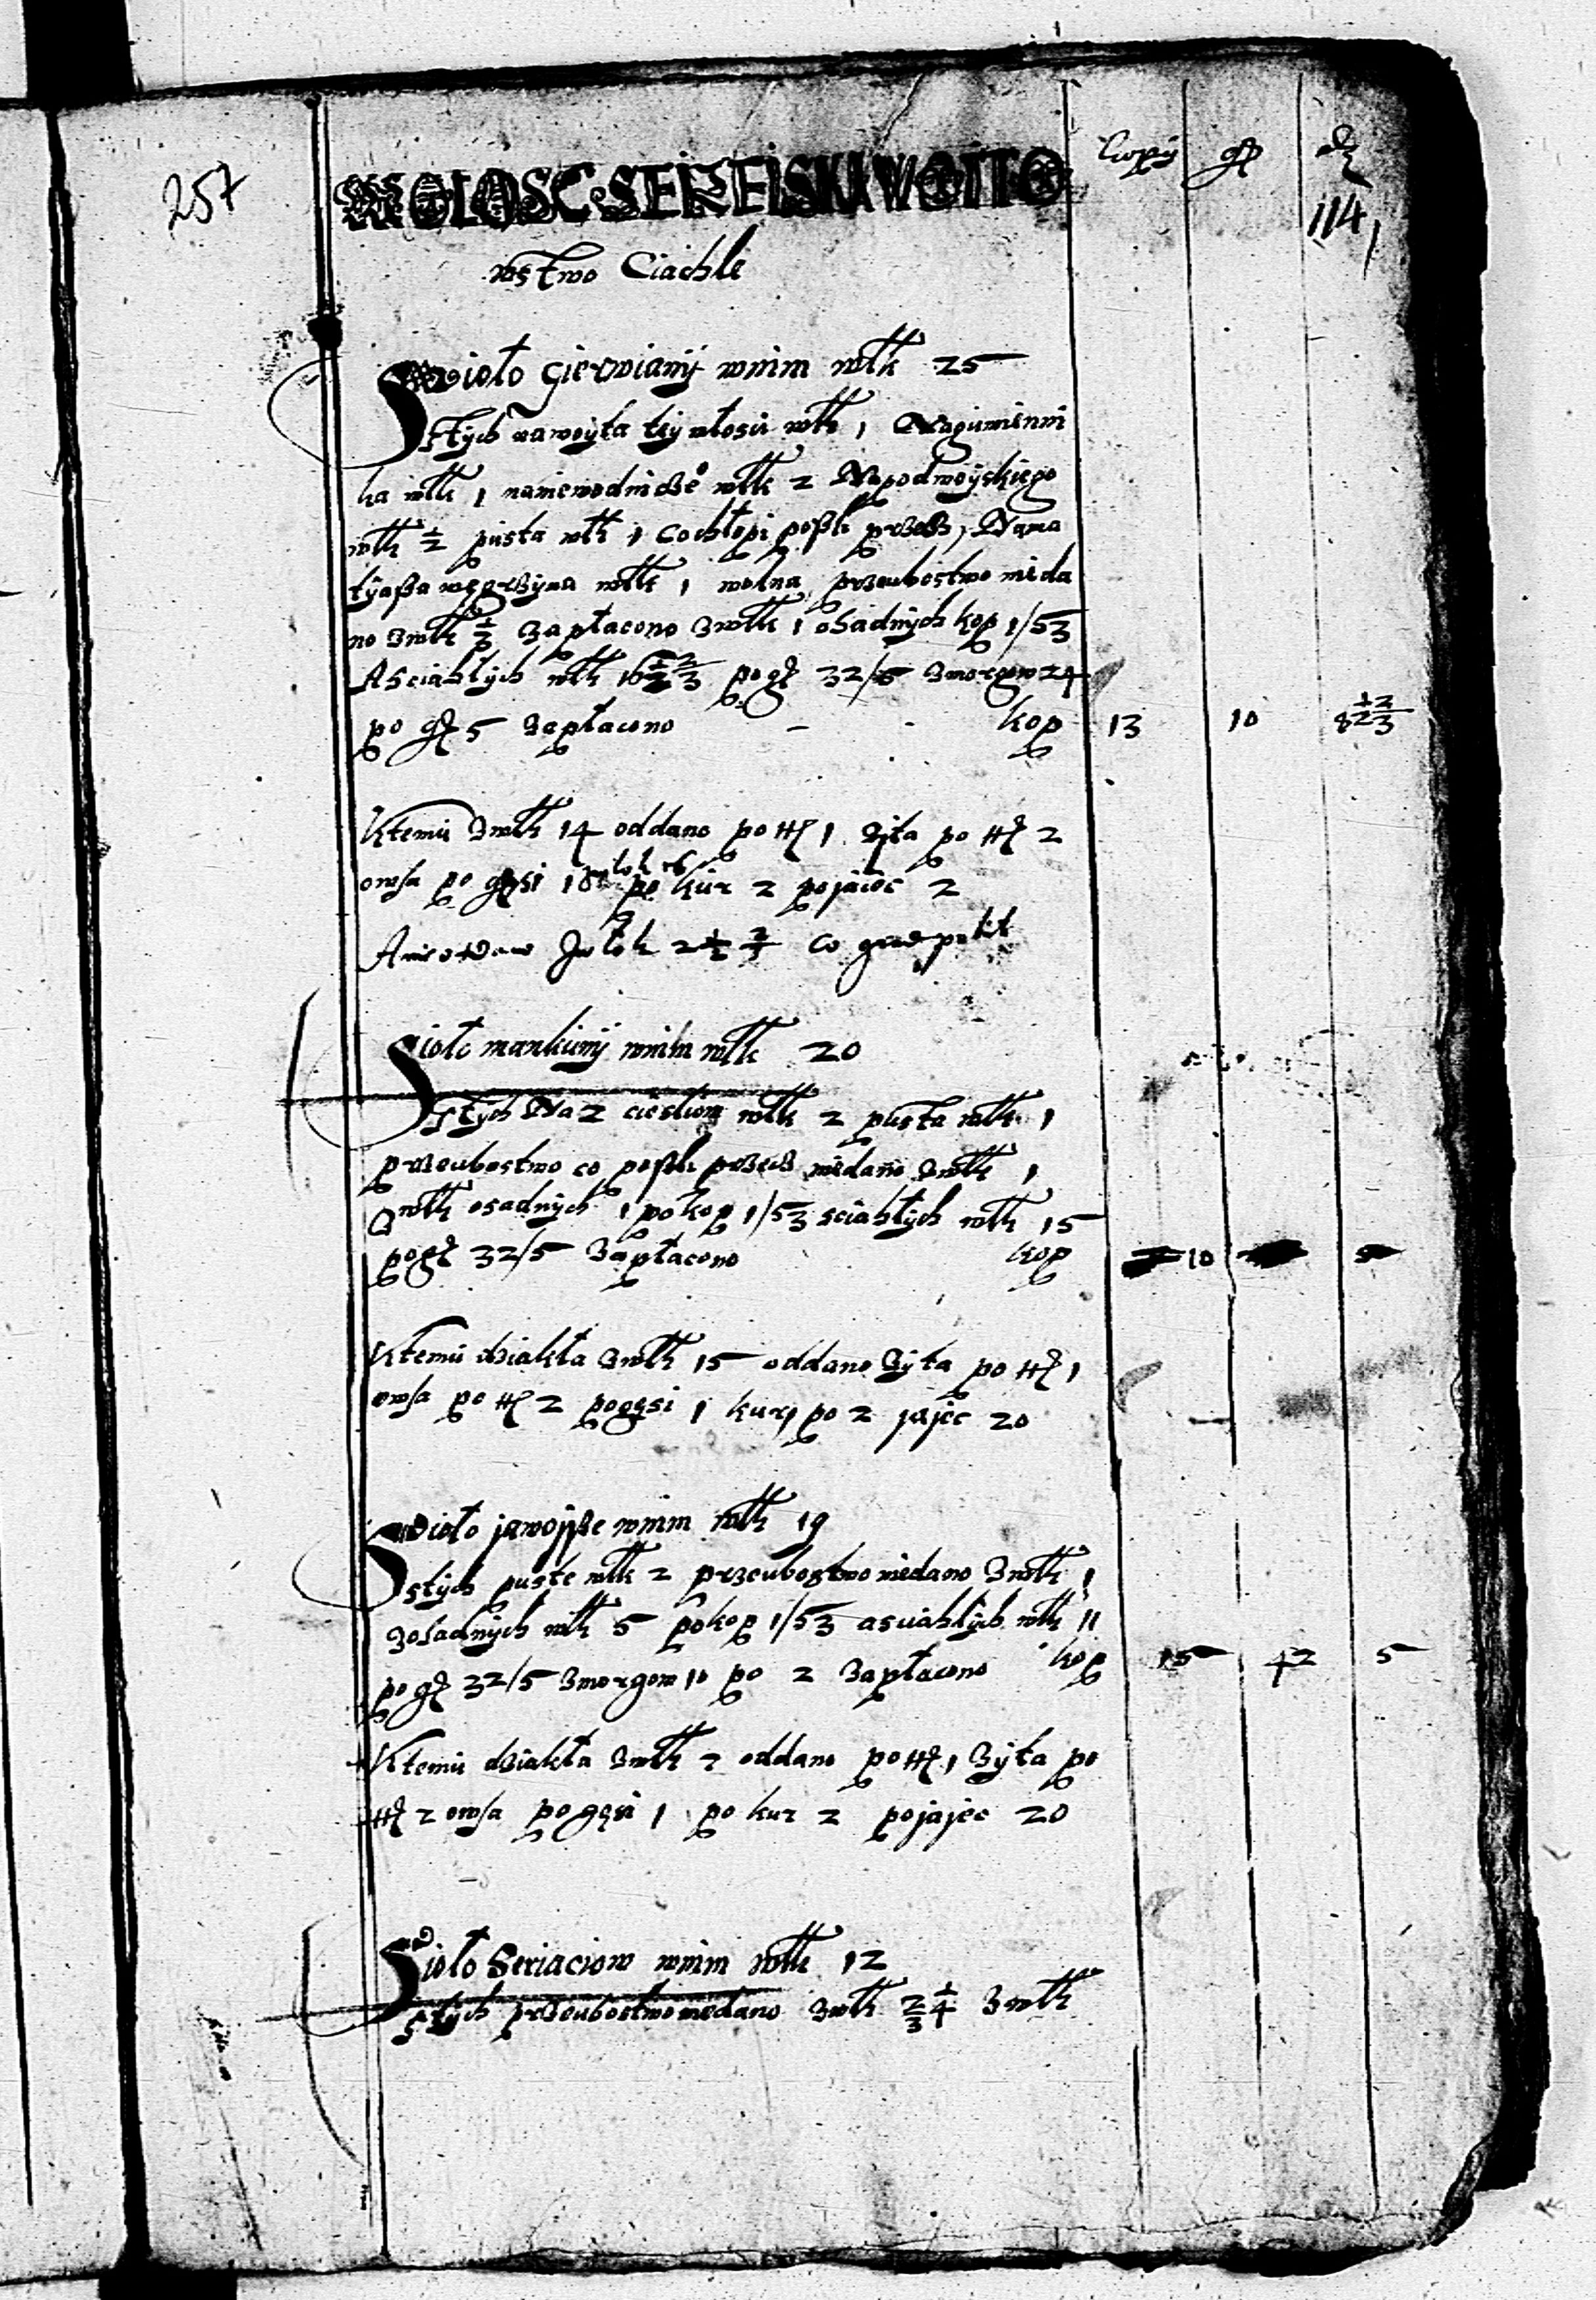 257
Copy gr d
114
WOLOSC SEIREISKA WOITO
wstwo Ciachle
Sioło Gierwiany wnim włk 25
Stych nawoyta tey włosci włk 1 Nagumienni
ka włk 1 naniewodnicze włk 2 Napodwoyskiego
włk ½ pusta włk 1 co chłopi poszli przecz, Nama
tyasza węgrzyna włk 1 wolna przeubostwo nieda
no zwłk ⅓ zapłacono zwłk 1 osadnych kop 1/53
A sciahłych włk 16 ½ ⅔ po gr 32/5 zmorgow 24
po gr 5 zapłacono kop 13 10 8 ½ ⅔
Ktemu zwłk 14 oddano po 1 żyta po 2
owsa po gęsi 1 po kur 2 po jaiec 2
co
Sioło mankuny wnim włk 20
Stych Na 2 cieslow włk 2 pusta włk 1
przeubostwo co poszli przecz niedano zwłk 1
Zwłk osadnych 1 po kop 1/53 sciahłych włk 15
po gr 32/5 zapłacono kop 10 5
Ktemu dziakła zwłk 15 oddano żyta po 1
owsa po 2 po gęsi 1 kur po 2 jajec 20
Sioło jawojsze wnim włk 19
Stych puste włk 2 przeubostwo niedano zwłk 1
zosadnych włk 5 po kop 1/53 a sciahłych włk 11
po gr 32/5 zmorgow 10 po 2 zapłacono kop 15 42 5
Ktemu dziakła zwłk 2 oddano po 1 żyta po
2 owsa po gęsi 1 po kur 2 po jajec 20
Sioło Seriaciow wnim włk 12
Stych przeubostwo niedano zwłk ⅔ ¼ zwłk